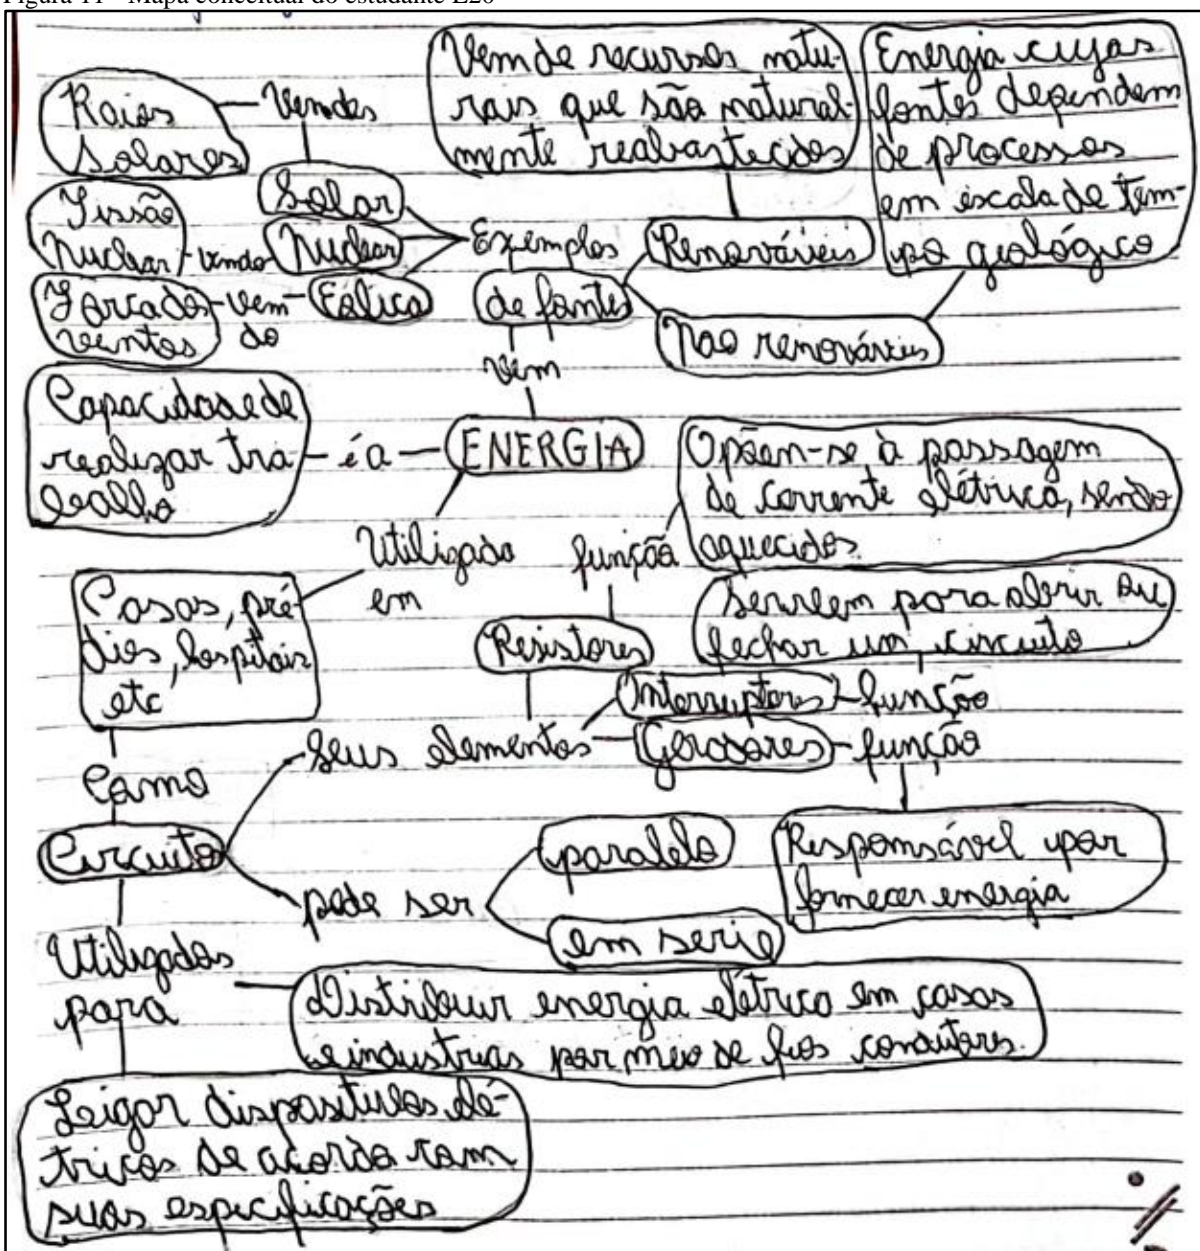 Figura 11 - Mapa conceitual do estudante E20
Raios
solares
Vem des
Vem de recursos natu-
rais que são natural-
mente reabastecidos
Energia cujas
fontes dependem
de processos
em escala de tem-
po geológico
Solar
Fissão
Nuclear
vem da
Nuclear
Exemplos
Renováveis
Força dos
ventos
vem
do
Eólica
de fontes
Nao renováveis
vem
Capacidade de
realizar tra
balho
é a
ENERGIA
Opõem-se à passagem
de corrente elétrica, sendo
aquecidos.
Utilizada
em
função
Casas, pré-
dios, hospitais
etc
Servem para abrir ou
fechar um circuito
Resistores
Interruptores
função
Seus elementos
Geradores
função
Como
Circuito
paralelo
Responsável por
fornecer energia
pode ser
em serie
Utilizados
para
Distribuir energia elétrica em casas
e industrias por meio de fios condutores.
Leigar dispositivos elé-
tricos de acordo com
suas especificações